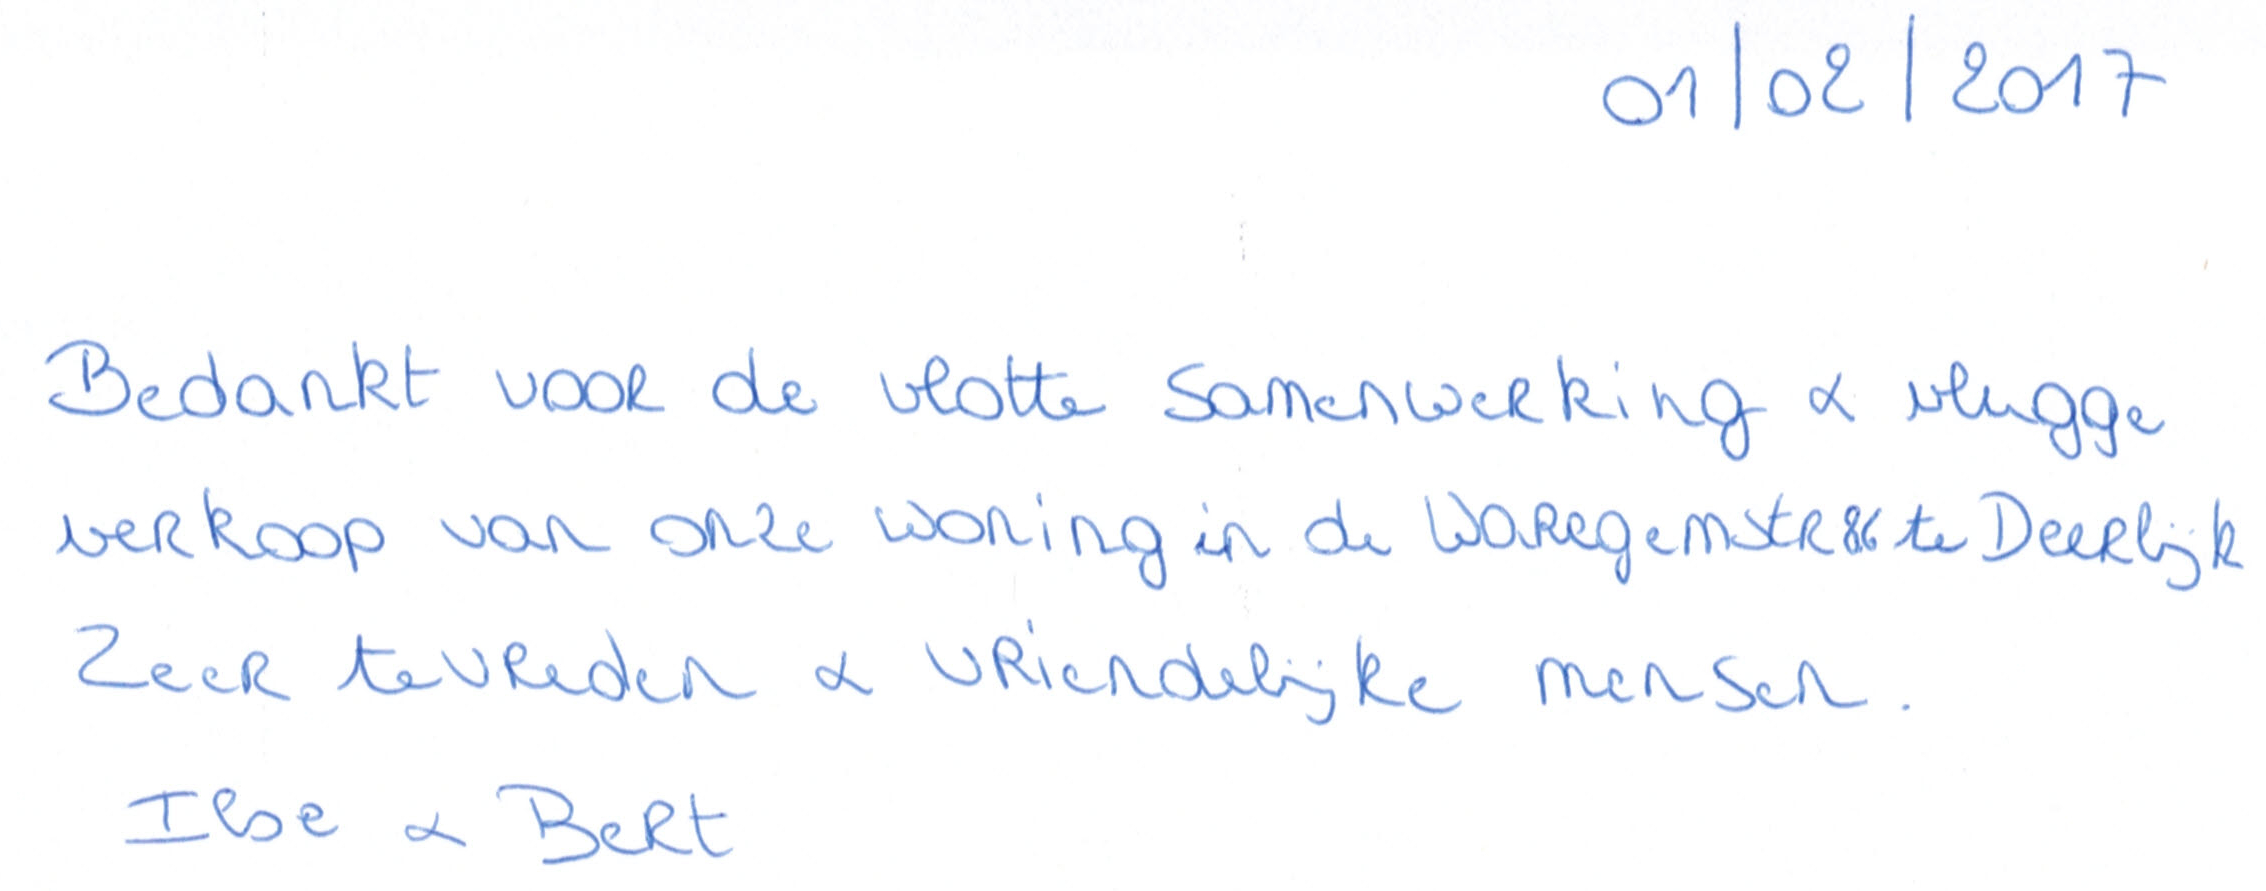 01/02/2017
Bedankt voor de vlotte samenwerking & vlugge
verkoop van onze woning in de Waregemstr 86 te Deerlijk
Zeer tevreden & vriendelijke mensen.
Ilse & Bert